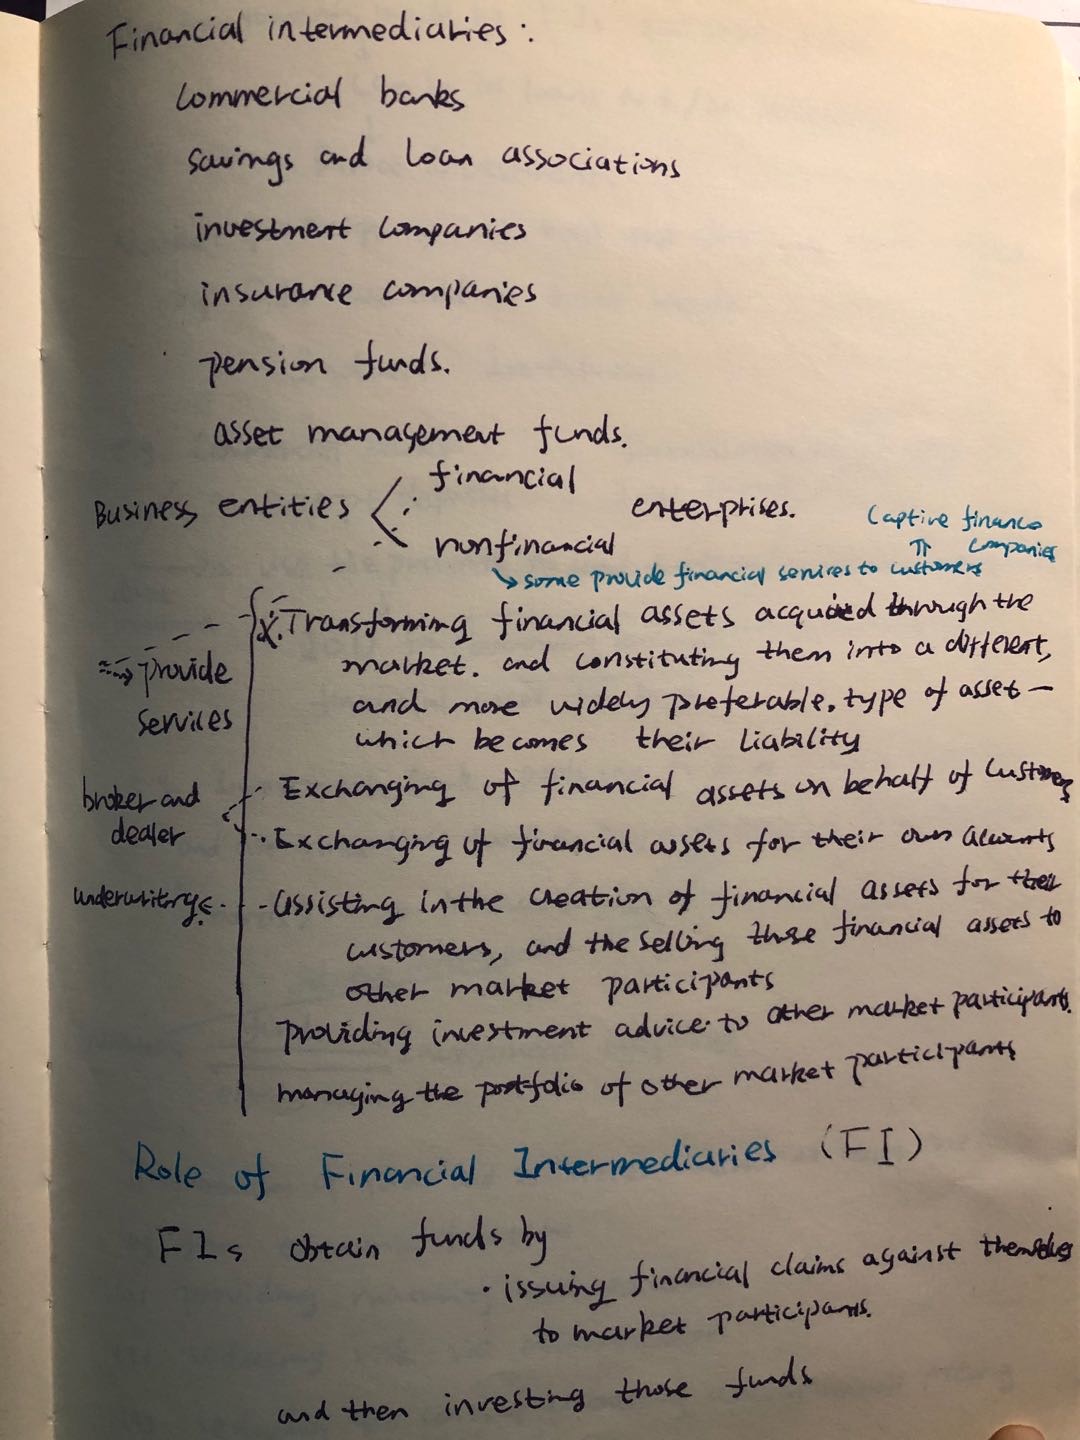 Financial intermediaries:
commercial banks
savings and loan associations
investment companies
insurance companies
pension funds.
asset management funds.
financial
Business entities enterprises.
nonfinancial
Captive finance
companies
some provide financial services to customers
Transforming financial assets acquired through the
market. and constituting them into a different,
and more widely preferable, type of asset —
which becomes their liability
provide
services
broker and
dealer
Exchanging of financial assets on behalf of customers
Exchanging of financial assets for their own accounts
underwriting
assisting in the creation of financial assets for their
customers, and the selling those financial assets to
other market participants
providing investment advice to other market participants.
managing the portfolio of other market participants
Role of Financial Intermediaries (FI)
FIs obtain funds by
· issuing financial claims against themselves
to market participants.
and then investing those funds